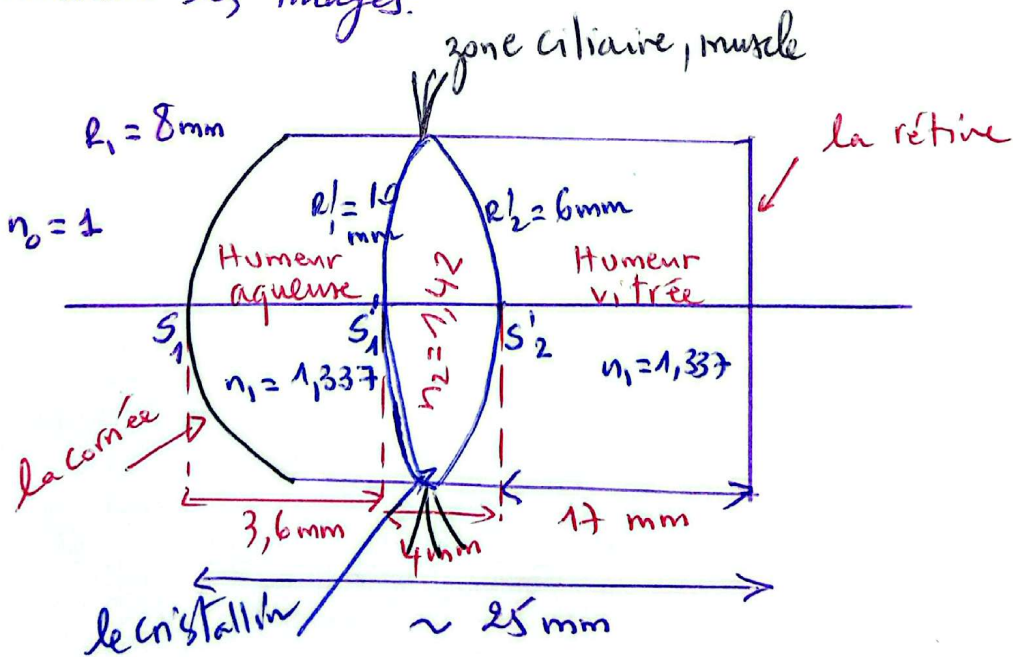 images.
zone ciliaire, muscle
R₁ = 8mm
la rétine
n₀ = 1
R'₁ = 10 mm
R'₂ = 6mm
Humeur aqueuse
n₂ = 1,42
Humeur vitrée
S₁
S'₁
S'₂
n₁ = 1,337
n₁ = 1,337
la cornée
3,6mm
4mm
17 mm
le cristallin
~ 25 mm